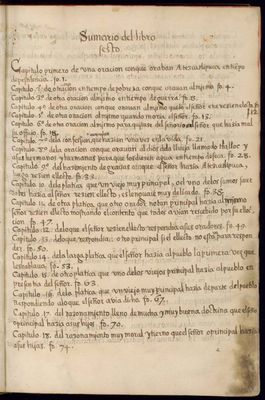 Sumario del libro
sesto.
Capitulo primero de vna oracion conque oraban a tezcatlipuca en tiempo
de pestilencia. fo. 1.
Capitulo .2º. de oracion al mismo en tiempo de pobreza conque oravan al mismo. fo. 4.
Capitulo .3º. de otra oracion al mismo en tiempo de guerra. fo. 8.
Capitulo .4º. de otra oracion conque oravan al mismo el señor
fo. 12
Capitulo .5º. de otra oracion al mismo quando moria el señor. fo. 15.
Capitulo .6º. de otra oracion al mismo para quitase del señorio al señor que hazia mal
su officio. fo. 18.
Capitulo .7º. de la confession que hazian vna vez en la vida. fo. 21.
Capitulo .8º. de la oracion conque oravan al dios de la lluvia llamado tlalloc y
a sus hermanos y hermanas para que les diesen agua en tiempo de seca. fo. 28.
Capitulo .9º. del hazimiento de gracias a tezcatlipuca,
luego electo. fo. 33.
Capitulo .10. de la platica que vn viejo muy principal, o el vno de los samos
hazia al señor recien electo. fo. 38.
Capitulo .11. de otra platica, que otro orador, o otro principal hazia al mismo
señor recien electo mostrando el contento que todos avian recebido por su elec
cion. fo. 47.
Capitulo .12. de lo que el señor recien electo respondia a sus oradores. fo. 49.
Capitulo .13. de lo que respondia otro principal si el electo no estava para respon
der. fo. 50.
Capitulo .14. de la larga platica, que el señor hazia al pueblo la primera vez que
les hablava. fo. 53.
Capitulo .15. de otra platica que vno de los viejos principal hazia al pueblo en
presencia del señor. fo. 63.
Capitulo .16. de la platica que vn viejo muy principal hazia de parte
respondiendo a lo que el señor avia dicho. fo. 67.
Capitulo .17. del razonamiento lleno de mucha y muy buena doctrina que el señor
principal hazia a sus hijos. fo. 70.
Capitulo .18. del razonamiento muy moral y tierno que el señor o principal hazia
a sus hijas. fo. 74.